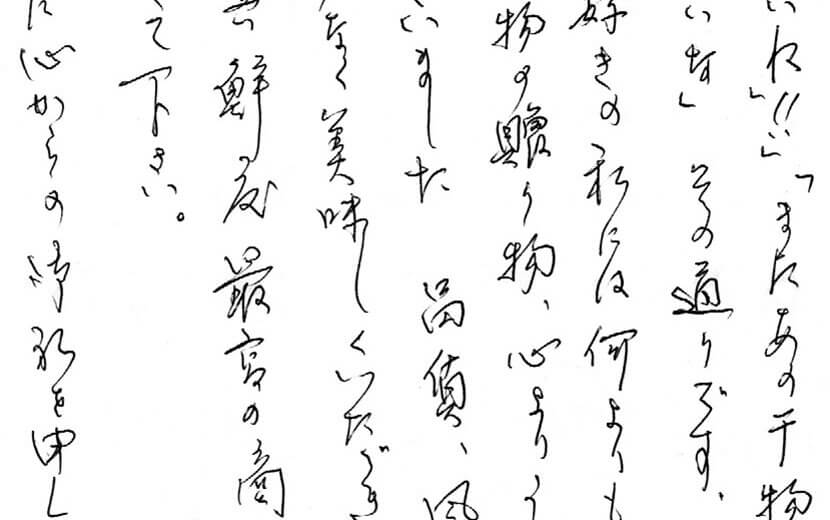 いね!!」「またあの干物
いな」その通りです、
好きの私には何よりも
物の贈り物、心よりう
いました 品質、風
なく美味しくいただき
鮮度最高の商
て下さい。
に心からの御礼を申し